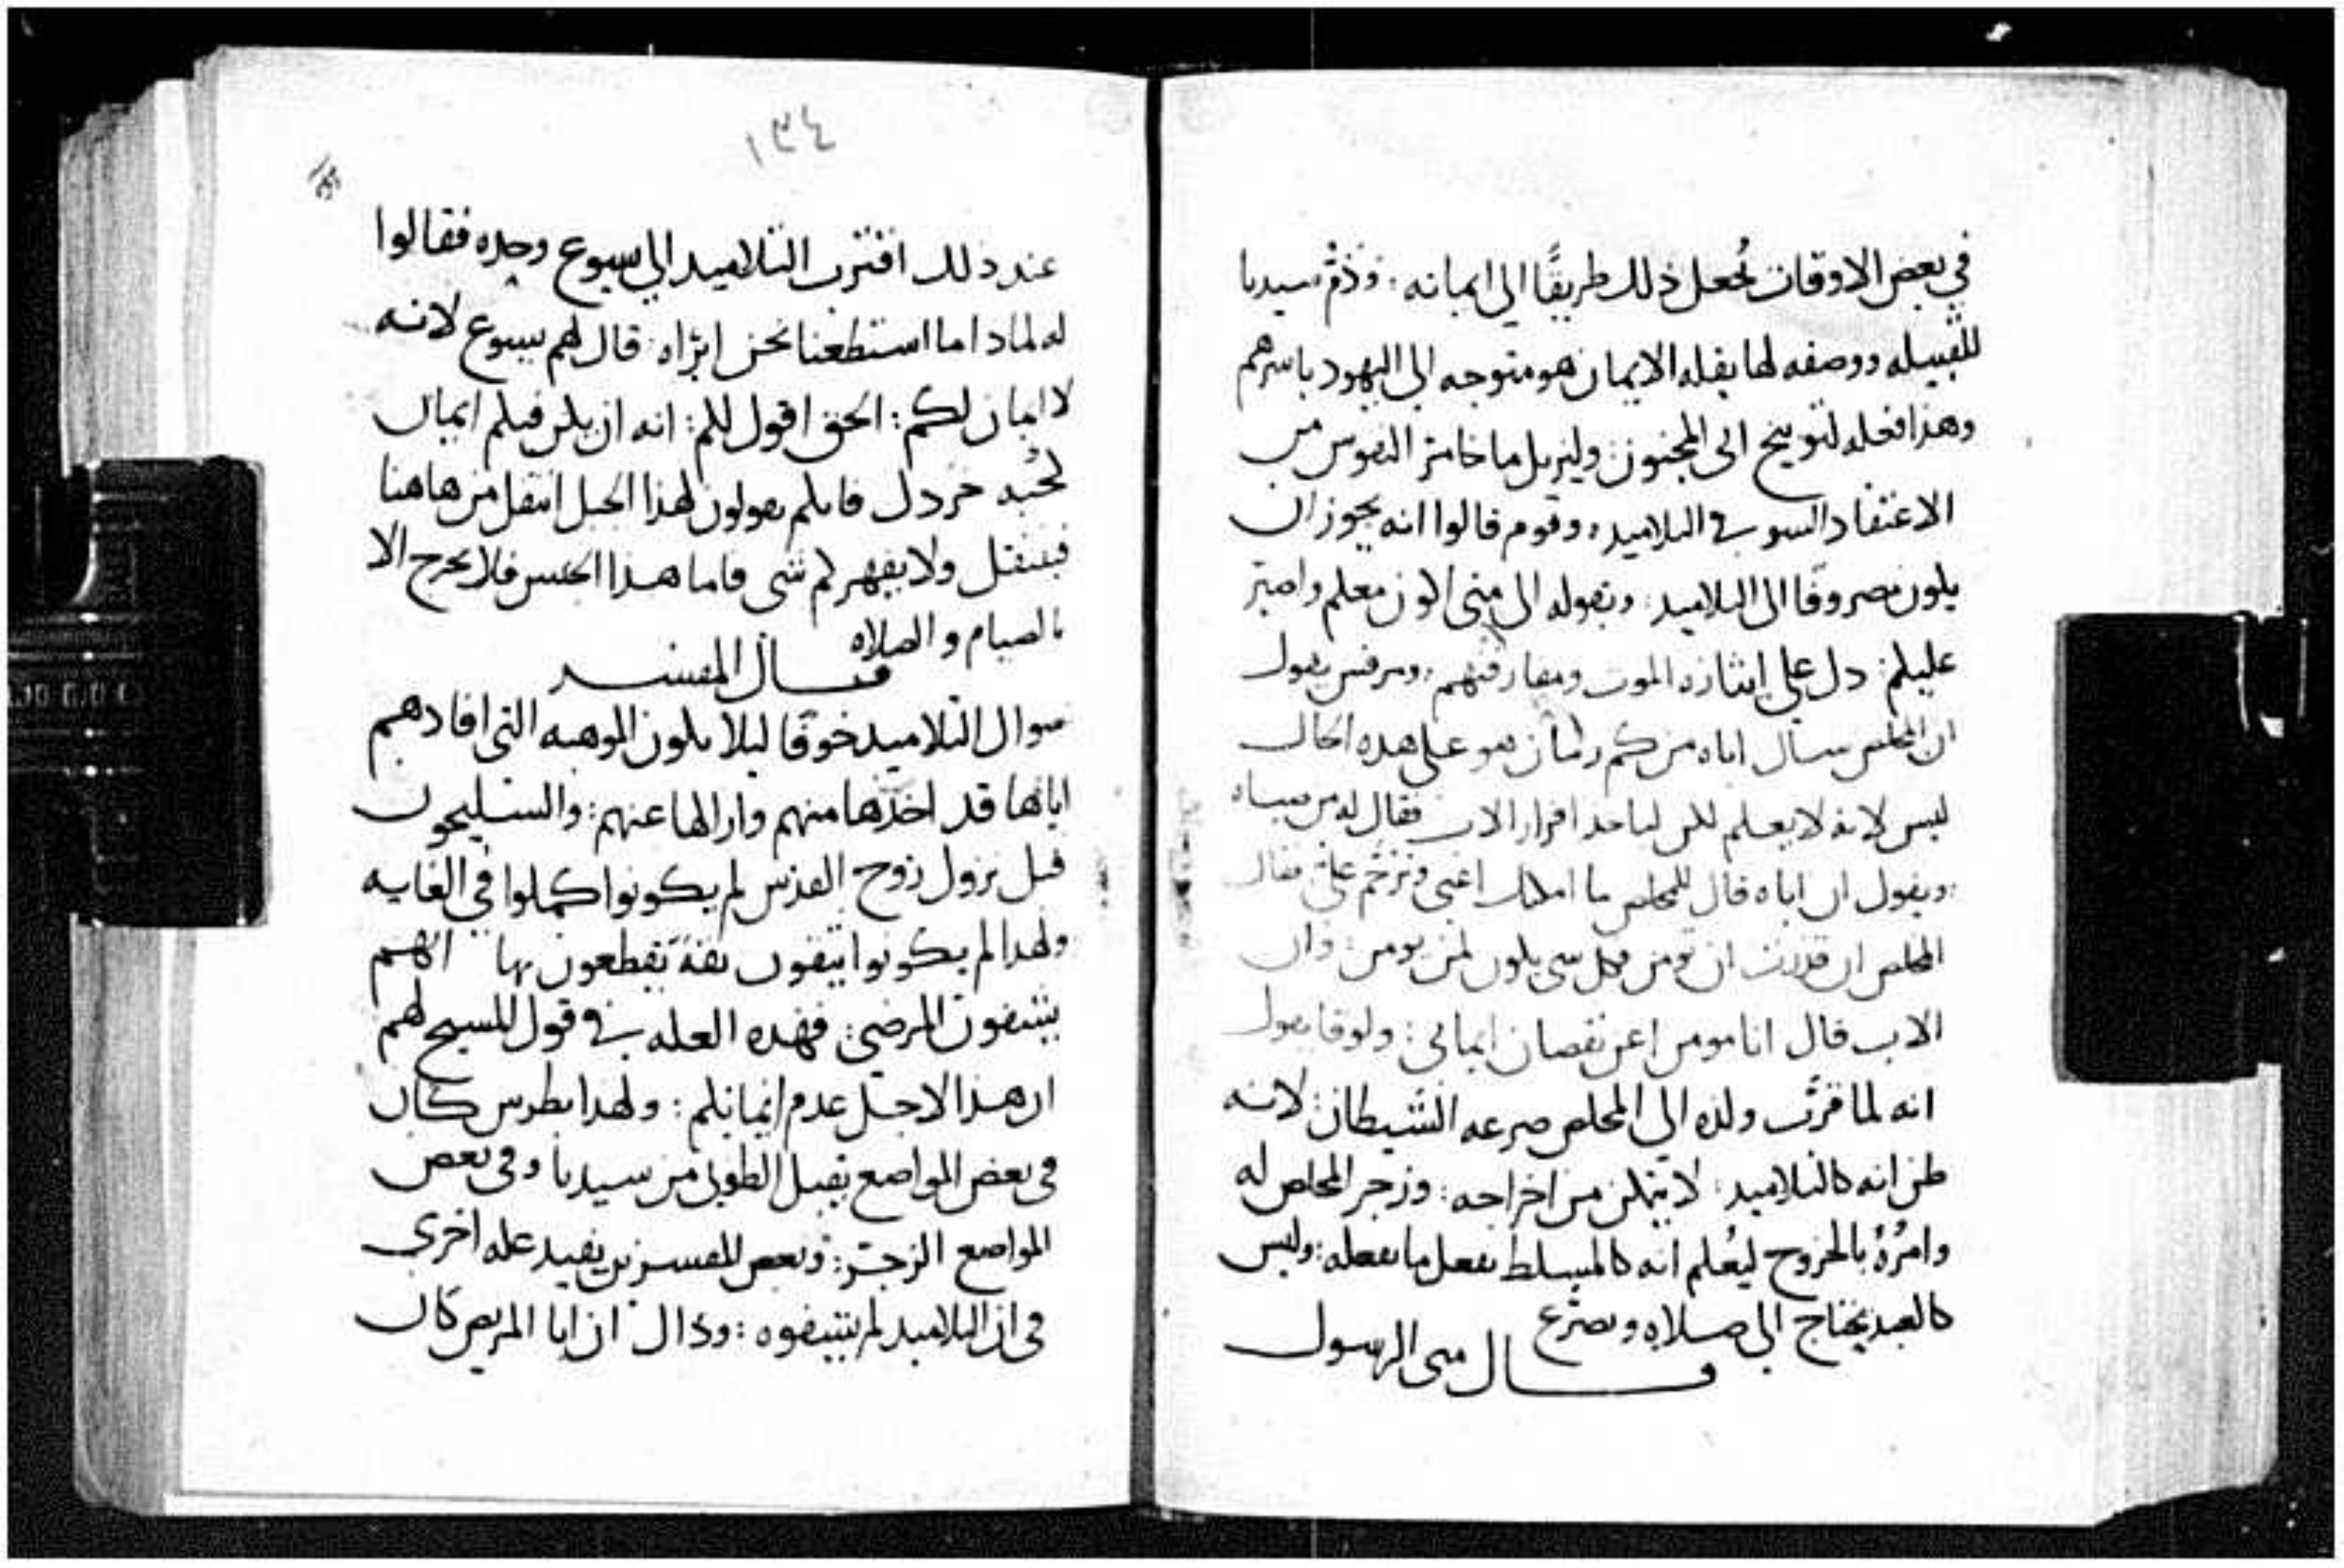 في بعض الاوقات نجعل ذلك طريقًا الى ايمانه : وذم سيدنا
للقبيله ووصفه لها بقله الايمان هو متوجه الى اليهود باسرهم
وهذا فعله لتوبيخ الى المجنون وليزيل ما خامر النفوس من
الاعتقاد السو في التلاميد ، وقوم قالوا انه يجوز ان
يكون مصروفا الى التلاميد : وبقوله الى متى اكون معكم واصبر
عليكم : دل على ايثاره الموت ومفارقتهم : ومرقس يقول
ان المخلص سال اباه من كم زمان هو على هده الحال
ليس لانه لا يعلم لكن لياخد اقرار الاب فقال له من صباه
: ويقول ان اباه قال للمخلص ما امكنك اعني وترحم علي فقال
المخلص ان قدرت ان تومن فكل شي يكون لمن يومن : وان
الاب قال انا مومن اعن نقصان ايماني : ولوقا يقول
انه لما قرب ولده الي المخلص صرعه الشيطان : لانه
ظن انه كالتلاميد : لا يتمكن من اخراجه : وزجر المخلص له
وامرُهُ بالخروج ليُعلم انه كالمسلط يفعل ما يفعله : وليس
كالعبد يحتاج الي صلاه وتضرع
قال متى الرسول
١٣٤
عند ذلك اقترب التلاميد الي يسوع وحده فقالوا
له لمادا ما استطعنا نحن ابراه : قال لهم يسوع لانه
لا ايمان لكم : الحق اقول لكم : انه ان يكن فيكم ايمان
كحبه خردل فانكم تقولون لهذا الجبل انتقل من هاهنا
فينتقل ولا يقهركم شي فاما هذا الجنس فلا يخرج الا
بالصيام والصلاه
قال المفسر
سوال التلاميد خوفًا ليلا يكون الموهبه التي افادهم
اياها قد اخدها منهم وازالها عنهم : والسليحون
قبل نزول روح القدس لم يكونوا كملوا في الغايه
ولهدا لم يكونوا يتقون تقة يقطعون بها انهم
يشفون المرضى : فهده العله في قول المسيح لهم
ان هذا لاجل عدم ايمانكم : ولهدا بطرس كان
في بعض المواضع يقبل الطوبى من سيدنا وفي بعض
المواضع الزجر : وبعض المفسرين يفيد عله اخرى
في ان التلاميد لم يشفوه : وقال ان ابا المريض كان